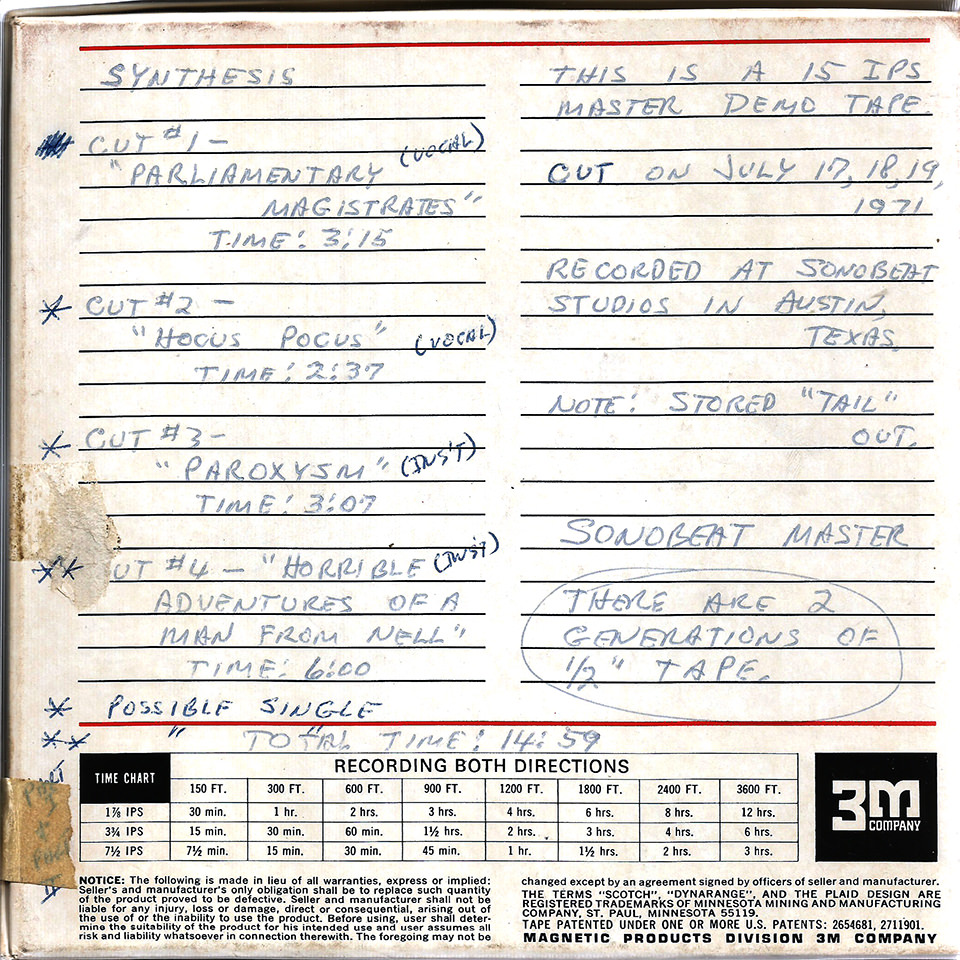 SYNTHESIS
CUT #1 - (VOCAL)
"PARLIAMENTARY
MAGISTRATES"
TIME: 3:15
* CUT #2 -
"HOCUS POCUS" (VOCAL)
TIME: 2:37
* CUT #3 -
"PAROXYSM" (INS'T)
TIME: 3:07
** CUT #4 - "HORRIBLE (INS'T)
ADVENTURES OF A
MAN FROM NELL"
TIME: 6:00
* POSSIBLE SINGLE
** " "
TOTAL TIME: 14:59
THIS IS A 15 IPS
MASTER DEMO TAPE.
CUT ON JULY 17, 18, 19,
1971
RECORDED AT SONOBEAT
STUDIOS IN AUSTIN,
TEXAS.
NOTE: STORED "TAIL"
OUT.
SONOBEAT MASTER
THERE ARE 2
GENERATIONS OF
1/2" TAPE.
TIME CHART
RECORDING BOTH DIRECTIONS
150 FT. 300 FT. 600 FT. 900 FT. 1200 FT. 1800 FT. 2400 FT. 3600 FT.
1⅞ IPS 30 min. 1 hr. 2 hrs. 3 hrs. 4 hrs. 6 hrs. 8 hrs. 12 hrs.
3¾ IPS 15 min. 30 min. 60 min. 1½ hrs. 2 hrs. 3 hrs. 4 hrs. 6 hrs.
7½ IPS 7½ min. 15 min. 30 min. 45 min. 1 hr. 1½ hrs. 2 hrs. 3 hrs.
3M
COMPANY
NOTICE: The following is made in lieu of all warranties, express or implied:
Seller's and manufacturer's only obligation shall be to replace such quantity
of the product proved to be defective. Seller and manufacturer shall not be
liable for any injury, loss or damage, direct or consequential, arising out of
the use of or the inability to use the product. Before using, user shall deter-
mine the suitability of the product for his intended use and user assumes all
risk and liability whatsoever in connection therewith. The foregoing may not be
changed except by an agreement signed by officers of seller and manufacturer.
THE TERMS "SCOTCH", "DYNARANGE", AND THE PLAID DESIGN ARE
REGISTERED TRADEMARKS OF MINNESOTA MINING AND MANUFACTURING
COMPANY, ST. PAUL, MINNESOTA 55119.
TAPE PATENTED UNDER ONE OR MORE U.S. PATENTS: 2654681, 2711901.
MAGNETIC PRODUCTS DIVISION 3M COMPANY